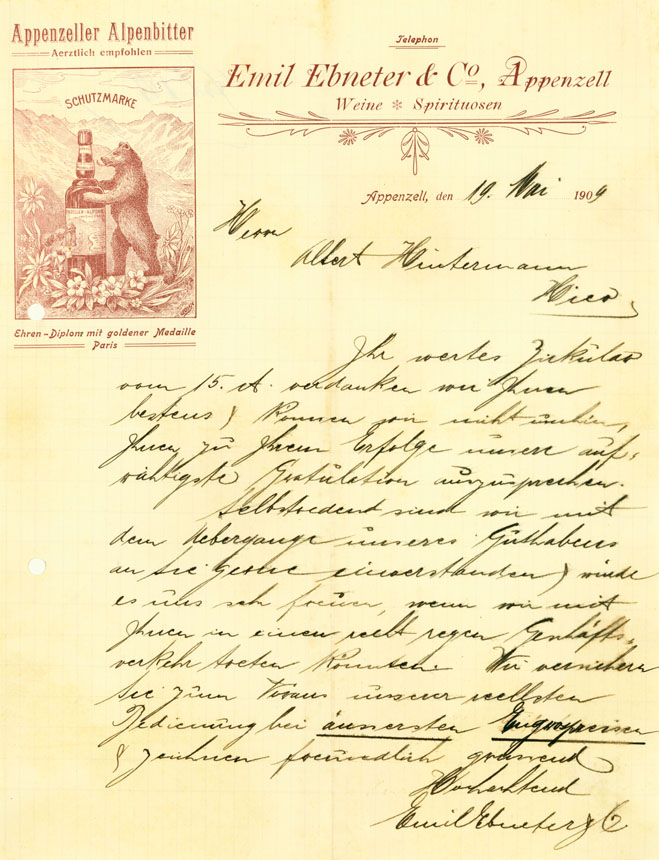 Appenzeller Alpenbitter
Aerztlich empfohlen
SCHUTZMARKE
Ehren-Diplom mit goldener Medaille
Paris
Telephon
Emil Ebneter & Co, Appenzell
Weine * Spirituosen
Appenzell, den 19. Mai 1909
Herrn
Albert Hintermann
Ihr wertes Zirkular
vom 15. ct. verdanken wir Ihnen
bestens & können wir nicht umhin,
Ihnen zu Ihrem Erfolge unsere auf-
richtigste Gratulation auszusprechen.
Selbstredend sind wir mit
dem Uebergange unseres Guthabens
an Sie gerne einverstanden & würde
es uns sehr freuen, wenn wir mit
Ihnen in einen recht regen Geschäfts-
verkehr treten könnten. Wir versichern
Sie zum Voraus unserer reellsten
Bedienung bei äussersten Engrospreisen
& zeichnen freundlich grüssend
Hochachtend
Emil Ebneter & Co